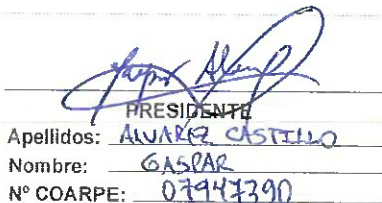 PRESIDENTE
Apellidos: ALVAREZ CASTILLO
Nombre: GASPAR
Nº COARPE: 07947390